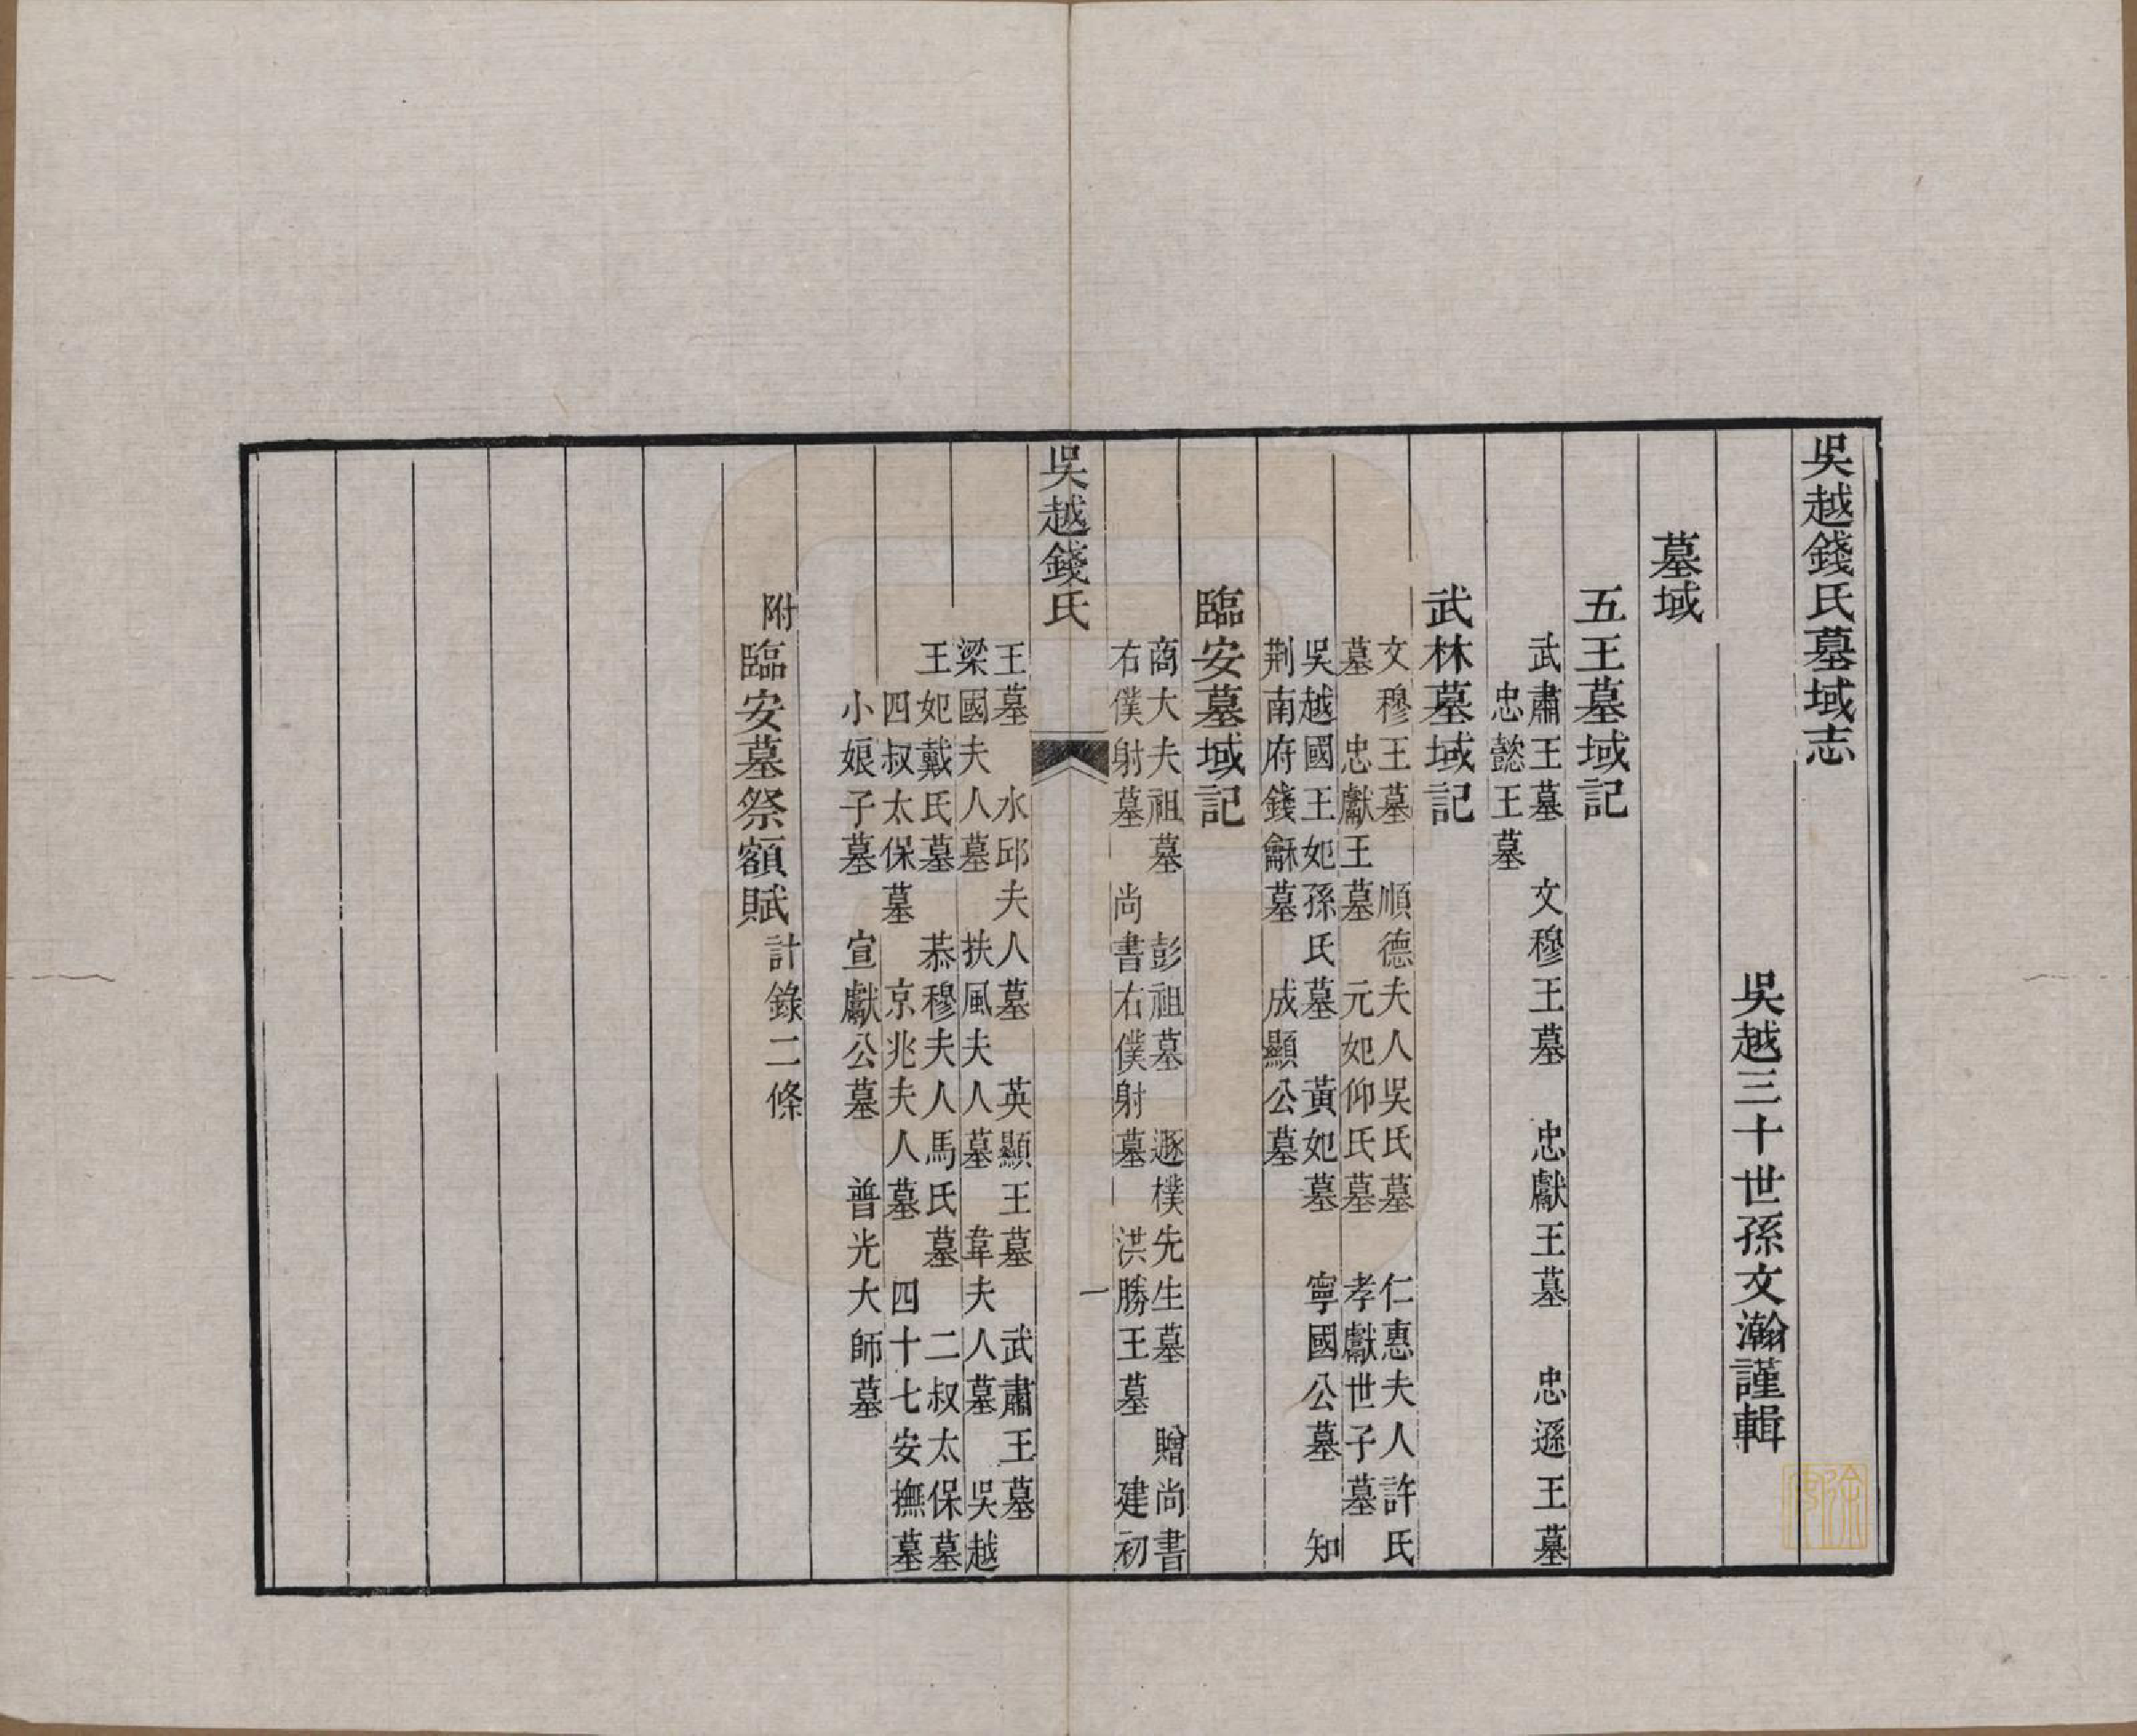 吳越錢氏墓域志
吳越三十世孫文瀚謹輯
墓域
五王墓域記
武肅王墓 文穆王墓 忠獻王墓 忠遜王墓
忠懿王墓
武林墓域記
文穆王墓 順德夫人吳氏墓 仁惠夫人許氏
墓 忠獻王墓 元妃仰氏墓 孝獻世子墓
吳越國王妃孫氏墓 黃妃墓 寧國公墓 知
荆南府錢龢墓 成顯公墓
臨安墓域記
商大夫祖墓 彭祖墓 遯樸先生墓 贈尚書
右僕射墓 尚書右僕射墓 洪勝王墓 建初
吳越錢氏
一
王墓 水邱夫人墓 英顯王墓 武肅王墓
梁國夫人墓 扶風夫人墓 韋夫人墓 吳越
王妃戴氏墓 恭穆夫人馬氏墓 二叔太保墓
四叔太保墓 京兆夫人墓 四十七安撫墓
小娘子墓 宣獻公墓 普光大師墓
附臨安墓祭額賦計錄二條